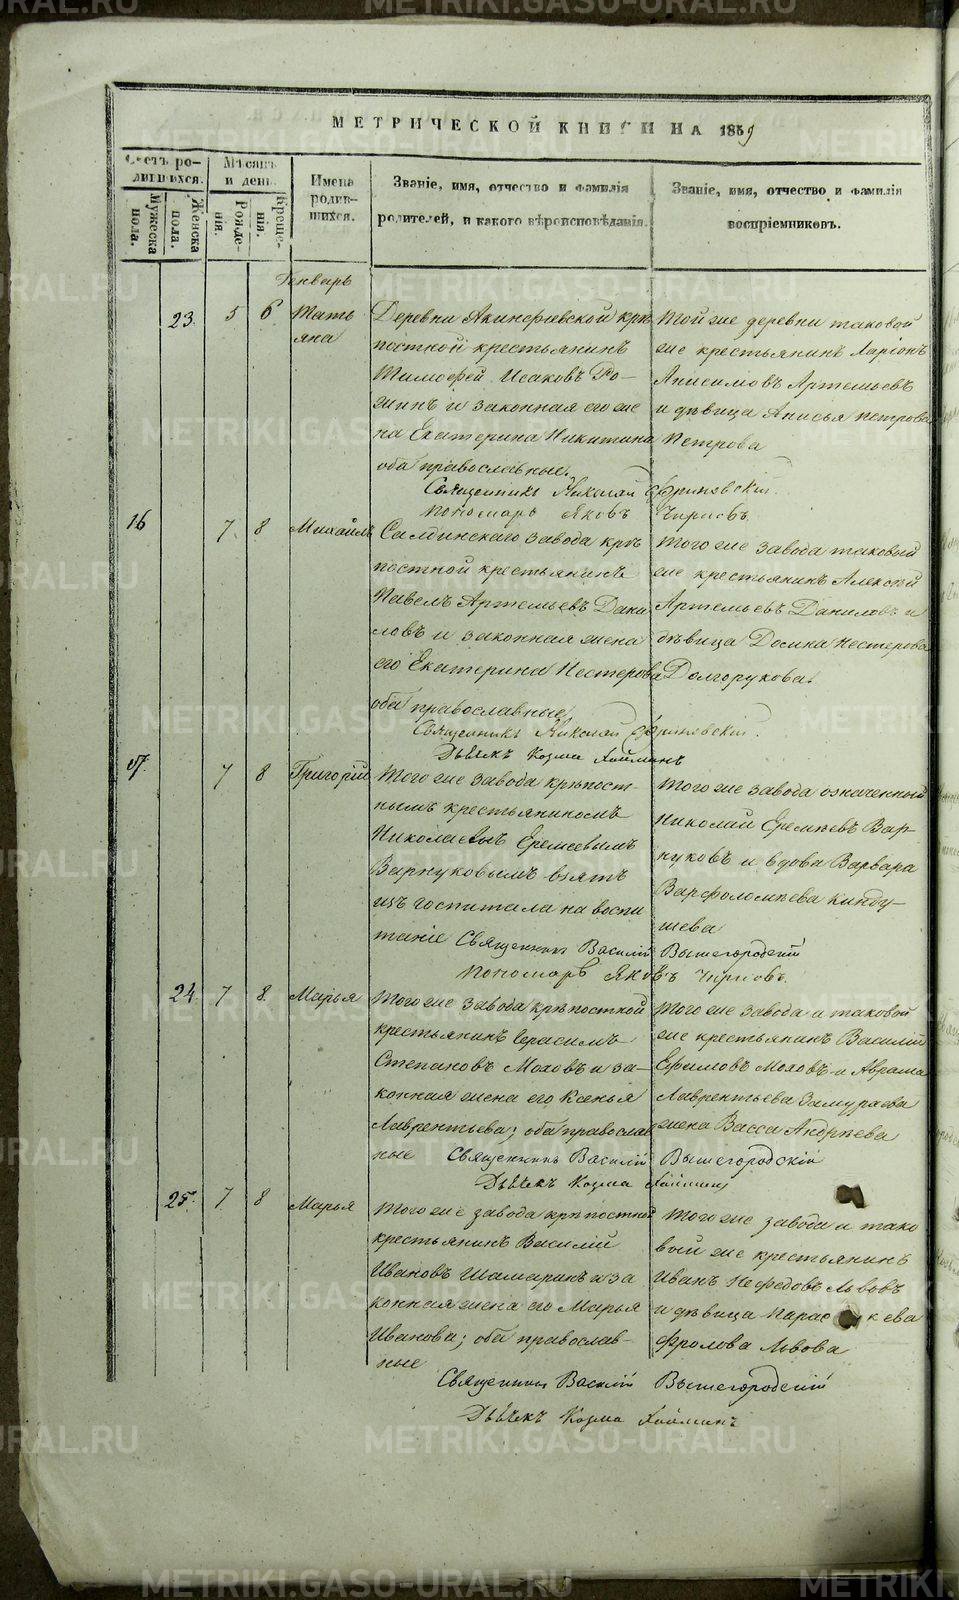 МЕТРИЧЕСКОЙ КНИГИ НА 1859
Счетъ родившихся.
Мужеска пола.
Женска пола.
Мѣсяцъ и день.
Рожденія.
Крещенія.
Имена родившихся.
Званіе, имя, отчество и фамилія
родителей, и какого вѣроисповѣданія.
Званіе, имя, отчество и фамилія
воспріемниковъ.
Генварь
23. 5 6 Тать
яна
Деревни Акинфіевской крѣ
постной крестьянинъ
Тимофей Исаковъ Ро-
щинъ и законная его же
на Екатерина Никитина
оба православные.
Той же деревни таковой
же крестьянинъ Ларіонъ
Анисимовъ Артемьевъ
и дѣвица Анисья Петрова
Петрова
Священникъ Николай
Пономарь Яковъ Чирковъ
16 7 8 Михаилъ
Салдинскаго завода крѣ
постной крестьянинъ
Павелъ Артемьевъ Дани
ловъ и законная жена
его Екатерина Нестерова
оба православные,
Того же завода таковый
же крестьянинъ Алексѣй
Артемьевъ Даниловъ и
дѣвица Домна Нестерова
Долгорукова.
Священникъ Николай
Дьячекъ Козма
17. 7 8 Григорій
Того же завода крѣпост-
нымъ крестьяниномъ
Николаемъ Еремеевымъ
Варнуковымъ взятъ
изъ госпиталя на воспи
таніе
Того же завода означенный
Николай Еремѣевъ Вар-
нуковъ и вдова Варвара
Варфоломѣева Кинду-
шева
Священникъ Василій Вышегородскій
Пономарь Яковъ Чирковъ.
24. 7 8. Марья
Того же завода крѣпостной
крестьянинъ Герасимъ
Степановъ Моховъ и за-
конная жена его Ксенья
Лаврентьева; оба православ
ные
Того же завода и таковой
же крестьянинъ Василій
Ефимовъ Моховъ и Аврама
Лаврентьева Замураева
жена Васса Андрѣева
Священникъ Василій Вышегородскій
Дьячекъ Козма
25. 7 8 Марья
Того же завода крѣпостной
крестьянинъ Василій
Ивановъ Шамаринъ и за
конная жена его Марья
Иванова; оба православ-
ные
Того же завода и тако
вый же крестьянинъ
Иванъ Нефедовъ Львовъ
и дѣвица Парас кева
Фролова Львова
Священникъ Василій Вышегородскій
Дьячекъ Козма
METRIKI.GASO-URAL.RU